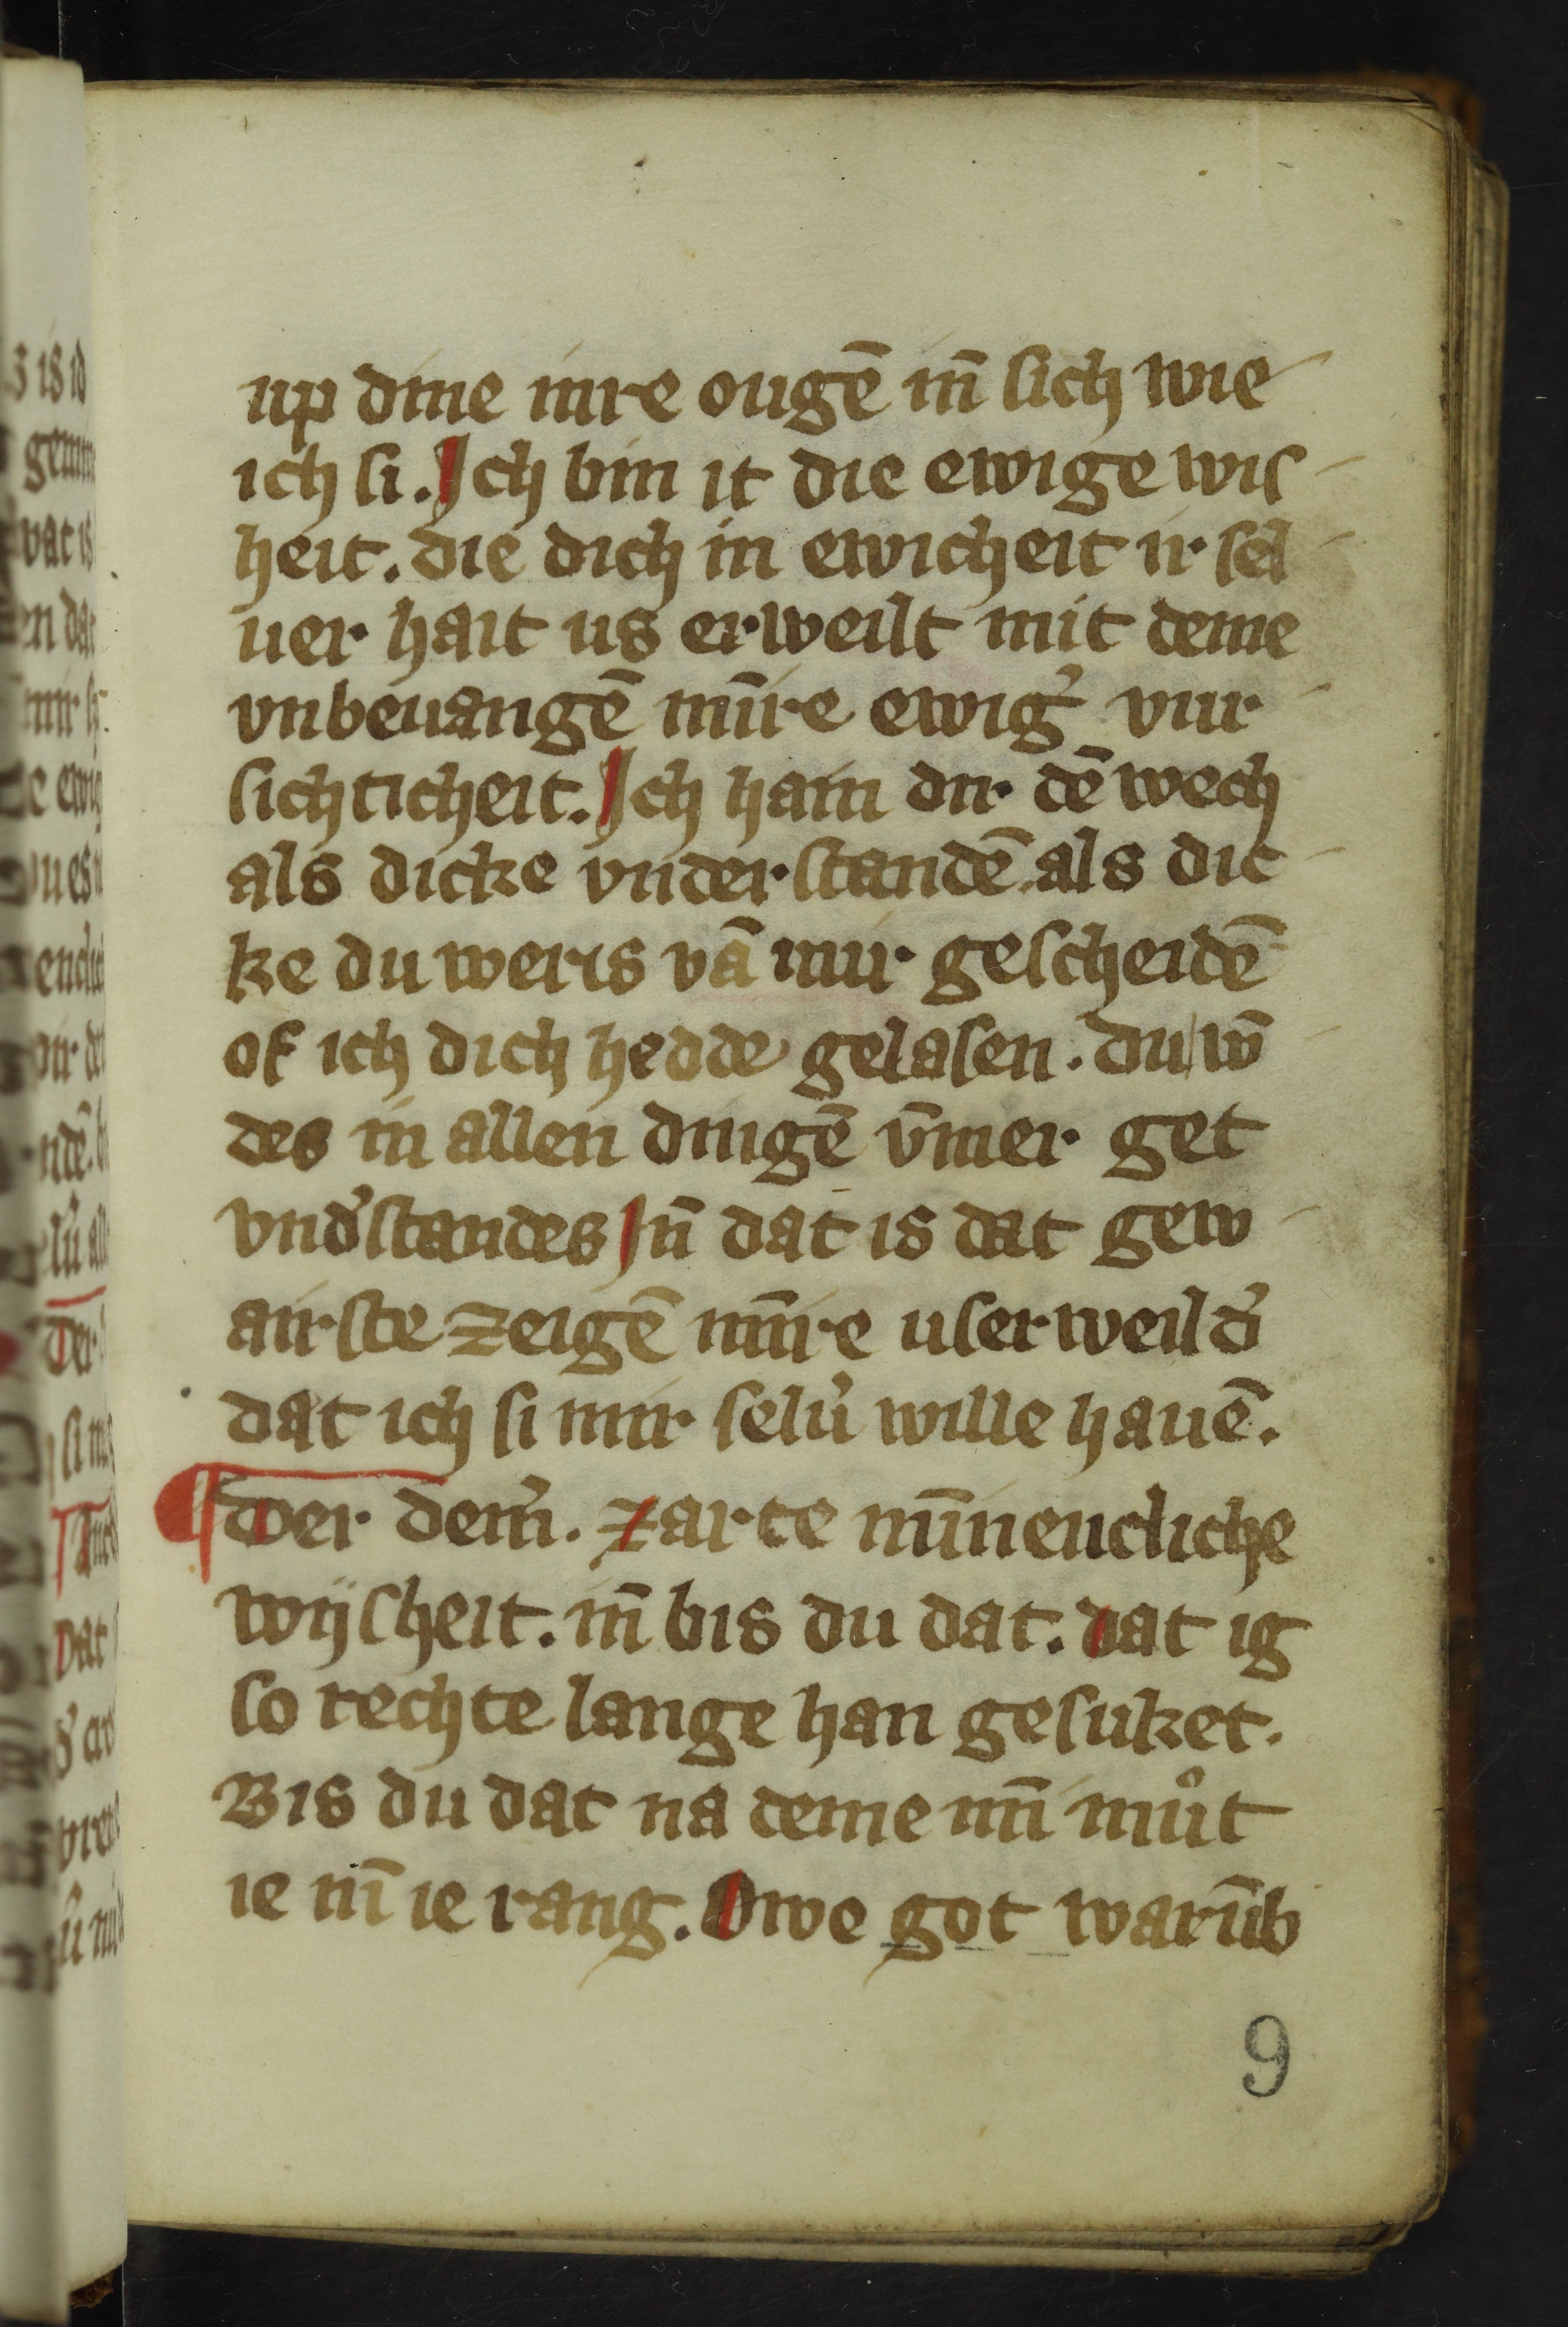 up dine inre ougē in̄ sich wie
ich si. Jch bin it die ewige wis
heit. die dich in ewicheit ir sel
uer hait us erweilt mit deme
vnbeuangē min̄re ewig᾽ vur
sichticheit. Jch hain dir dē wech
als dicke vnder standē. als dic
ke du weris vā mir gescheidē
of ich dich hedde gelasen. du w̄
des in allen dingē v̄mer get
vnd᾽standes Jn̄ dat is dat gew
airste zeigē min̄re userweild᾽
dat ich si mir selu᾽ wille hauē.
¶ der dem᾽. zarte min̄encliche
wijsheit. in̄ bis du dat. dat ig
so rechte lange han gesuket.
Bis du dat na deme min̄ můt
ie in̄ ie rang. Owe got warūb
9